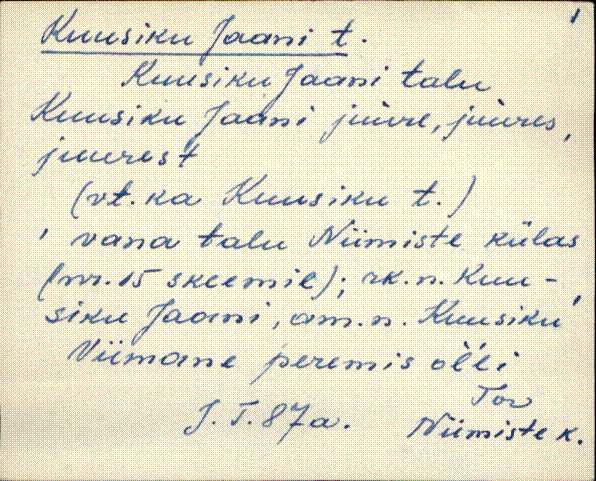 1
Kuusiku Jaani t.
Kuusiku Jaani talu
Kuusiku Jaani juure, juures,
juurest
(vt. ka Kuusiku t.)
vana talu Niimiste külas
(nr. 15 skeemil); rk. n. Kuu-
siku Jaani, am. n. Kuusiku
Viimane peremis olli
Tor
J. T. 87a. Niimiste k.